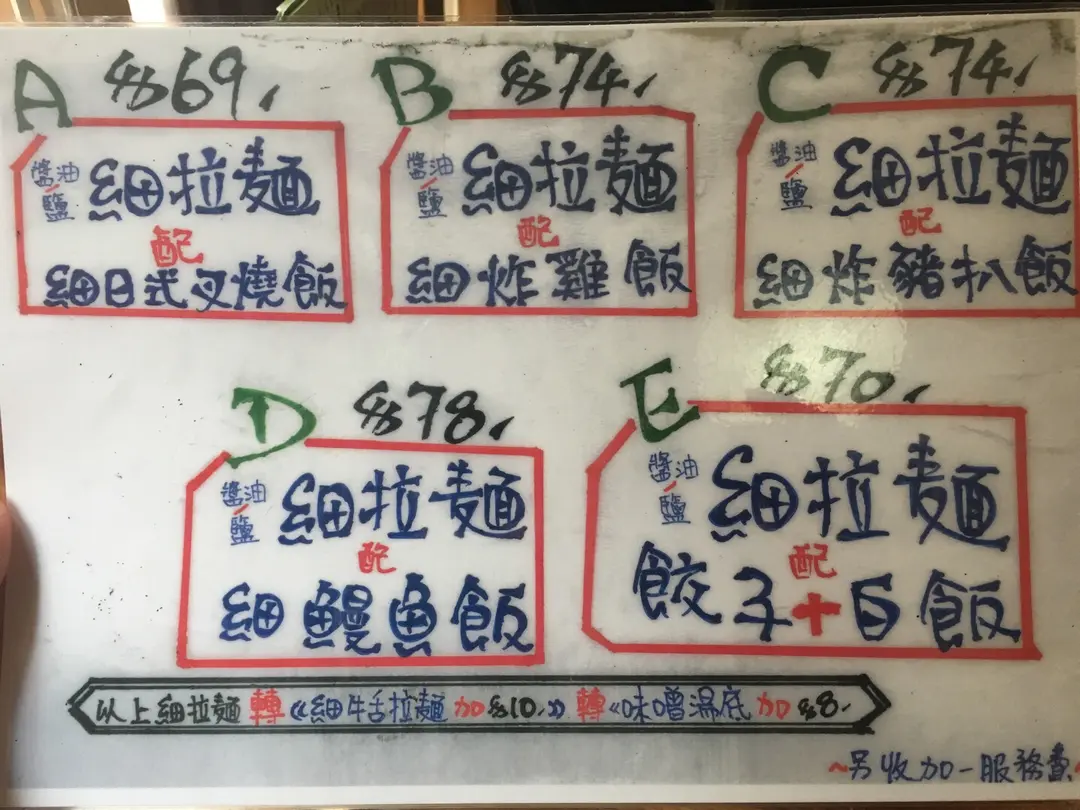 A $69.
醬油/鹽 細拉麵
配
細日式叉燒飯
B $74.
醬油/鹽 細拉麵
配
細炸雞飯
C $74.
醬油/鹽 細拉麵
配
細炸豬扒飯
D $78.
醬油/鹽 細拉麵
配
細鰻魚飯
E $70.
醬油/鹽 細拉麵
配
餃子+白飯
以上細拉麵轉《細牛舌拉麵加$10.》轉《味噌湯底加$8.
~另收加一服務費~